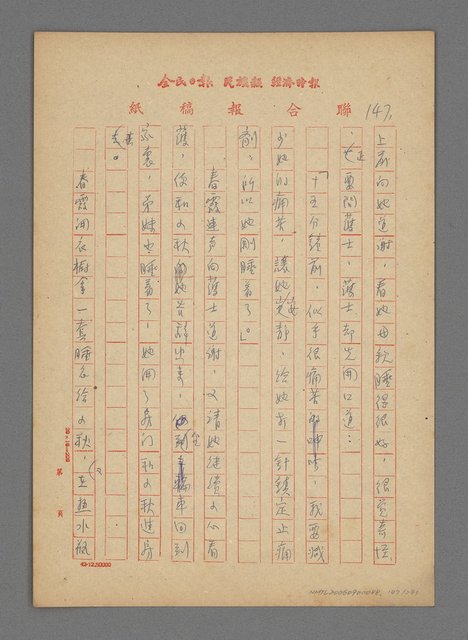 全民日報 民族報 經濟時報
聯合報稿紙
147,
上前向她道謝，看她母親睡得很好，很覺奇怪
，正要問護士，護士却先開口道：
「十五分鐘前，似乎很痛苦的呻吟，我要減
少她的痛苦，讓她安靜，給她打一針鎮定止痛
劑，所以她剛睡着了。」
春霞連聲向護士道謝，又請她繼續小心看
護，便和小秋向她告辭出來，坐車回到
家裏，弟妹也睡着了，她開了房门和小秋進房
去。
春霞開衣櫥拿一套睡衣給小秋，又在熱水瓶
第 頁
43.12.50000
NMTL20050900088, 147/291